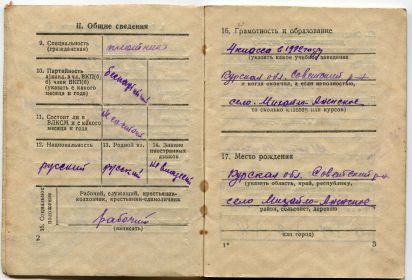 II. Общие сведения
9. Специальность
(гражданская)
плотник
10. Партийность
(указать с какого
месяца и года)
беспартийный
11. Состоит ли в
ВЛКСМ и с какого
месяца и года
12. Национальность
13. Родной яз.
14. Знание
иностранных
языков
русский
русский
не владеет
15. Социальное
положение
Рабочий, служащий, крестьянин-
колхозник, крестьянин-единоличник
рабочий
(вписать)
2
16. Грамотность и образование
4 класса в
(указать какое учебное заведение
Курская обл. Советский р-н
и когда окончил, а если не окончил,
село. Михайло-Анненское
то сколько классов или курсов)
17. Место рождения
Курская обл. Советский р-н
(указать область, край, республику,
село Михайло-Аненское
район, сельсовет, деревню
или город)
1*
3